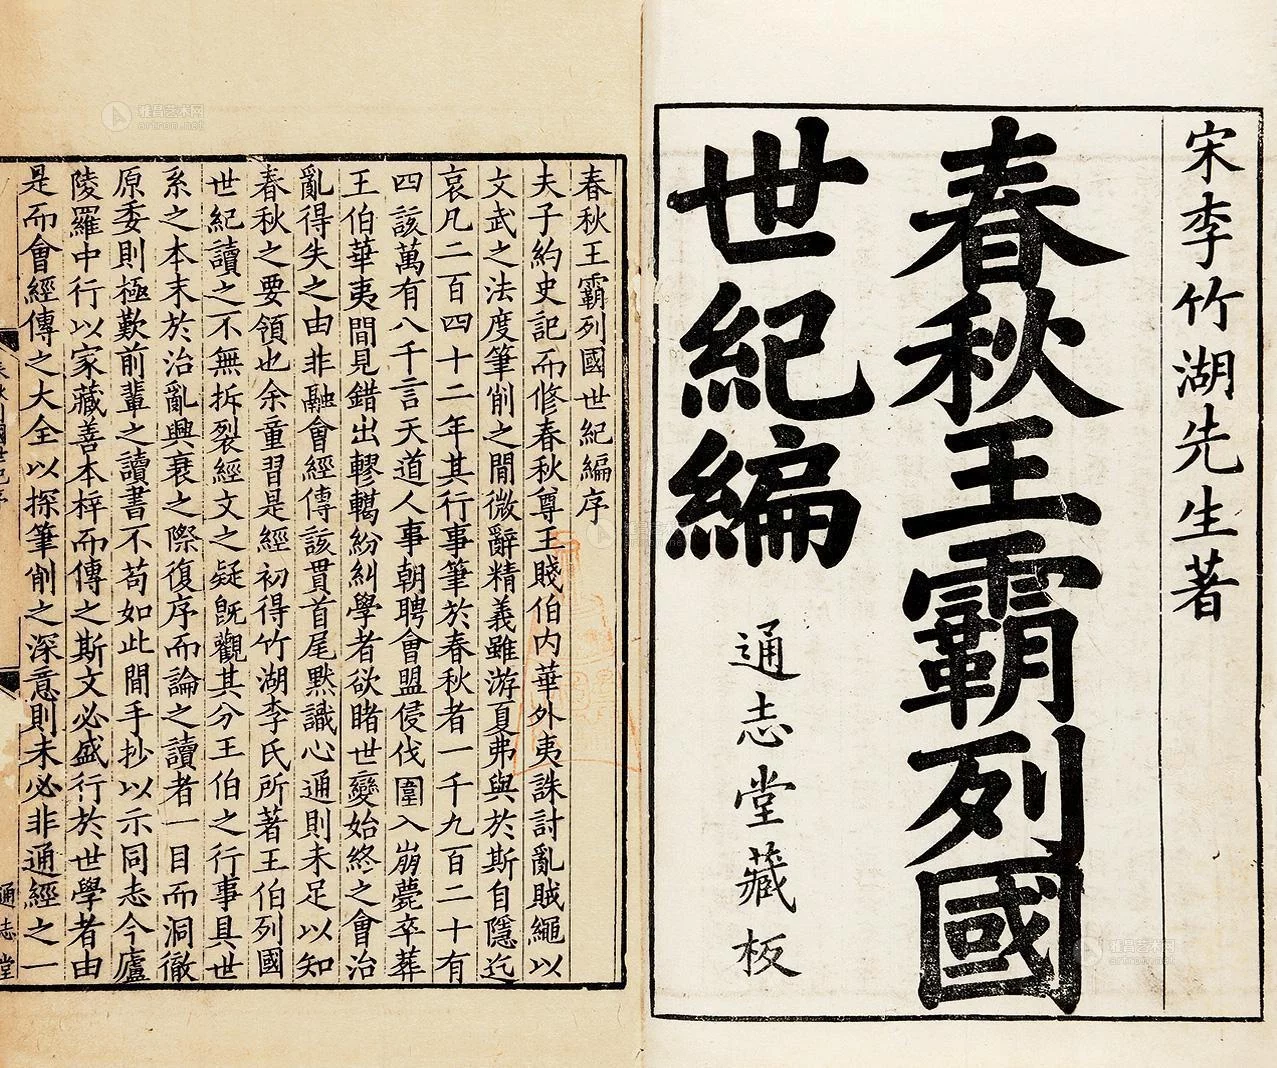 宋李竹湖先生著
春秋王霸列國
世紀編
通志堂藏板
春秋王霸列國世紀編序
夫子約史記而修春秋尊王賤伯內華外夷誅討亂賊繩以
文武之法度筆削之間微辭精義雖游夏弗與於斯自隱迄
哀凡二百四十二年其行事筆於春秋者一千九百二十有
四該萬有八千言天道人事朝聘會盟侵伐圍入崩薨卒葬
王伯華夷間見錯出轇轕紛糾學者欲睹世變始終之會治
亂得失之由非融會經傳該貫首尾默識心通則未足以知
春秋之要領也余童習是經初得竹湖李氏所著王伯列國
世紀讀之不無拆裂經文之疑旣觀其分王伯之行事具世
系之本末於治亂興衰之際復序而論之讀者一目而洞徹
原委則極歎前輩之讀書不苟如此間手抄以示同志今廬
陵羅中行以家藏善本梓而傳之斯文必盛行於世學者由
是而會經傳之大全以探筆削之深意則未必非通經之一
通志堂
雅昌艺术网
artron.net
雅昌艺术网
artron.net